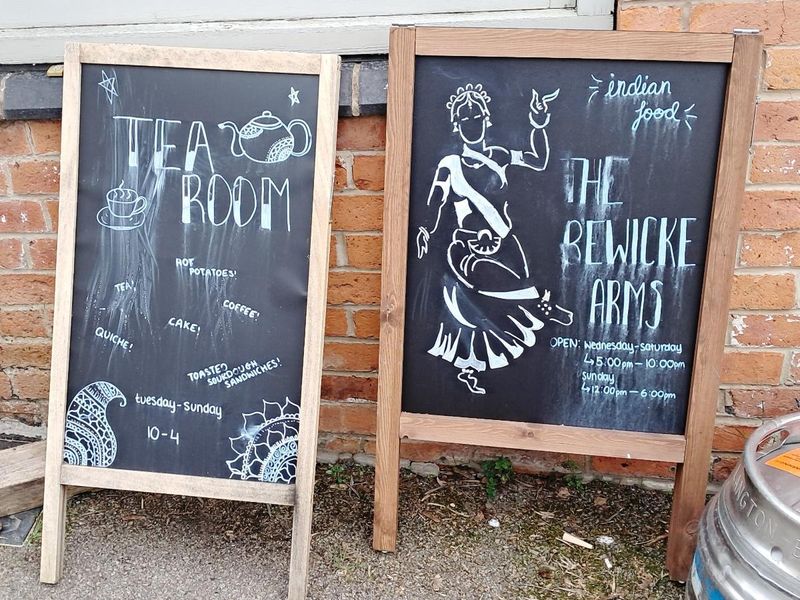 TEA
ROOM
HOT
POTATOES!
TEA!
COFFEE!
CAKE!
QUICHE!
TOASTED
SOURDOUGH
SANDWICHES!
tuesday-sunday
10-4
indian
food
THE
BEWICKE
ARMS
OPEN: Wednesday-saturday
↳5:00pm-10:00pm
Sunday
↳12:00pm-6:00pm